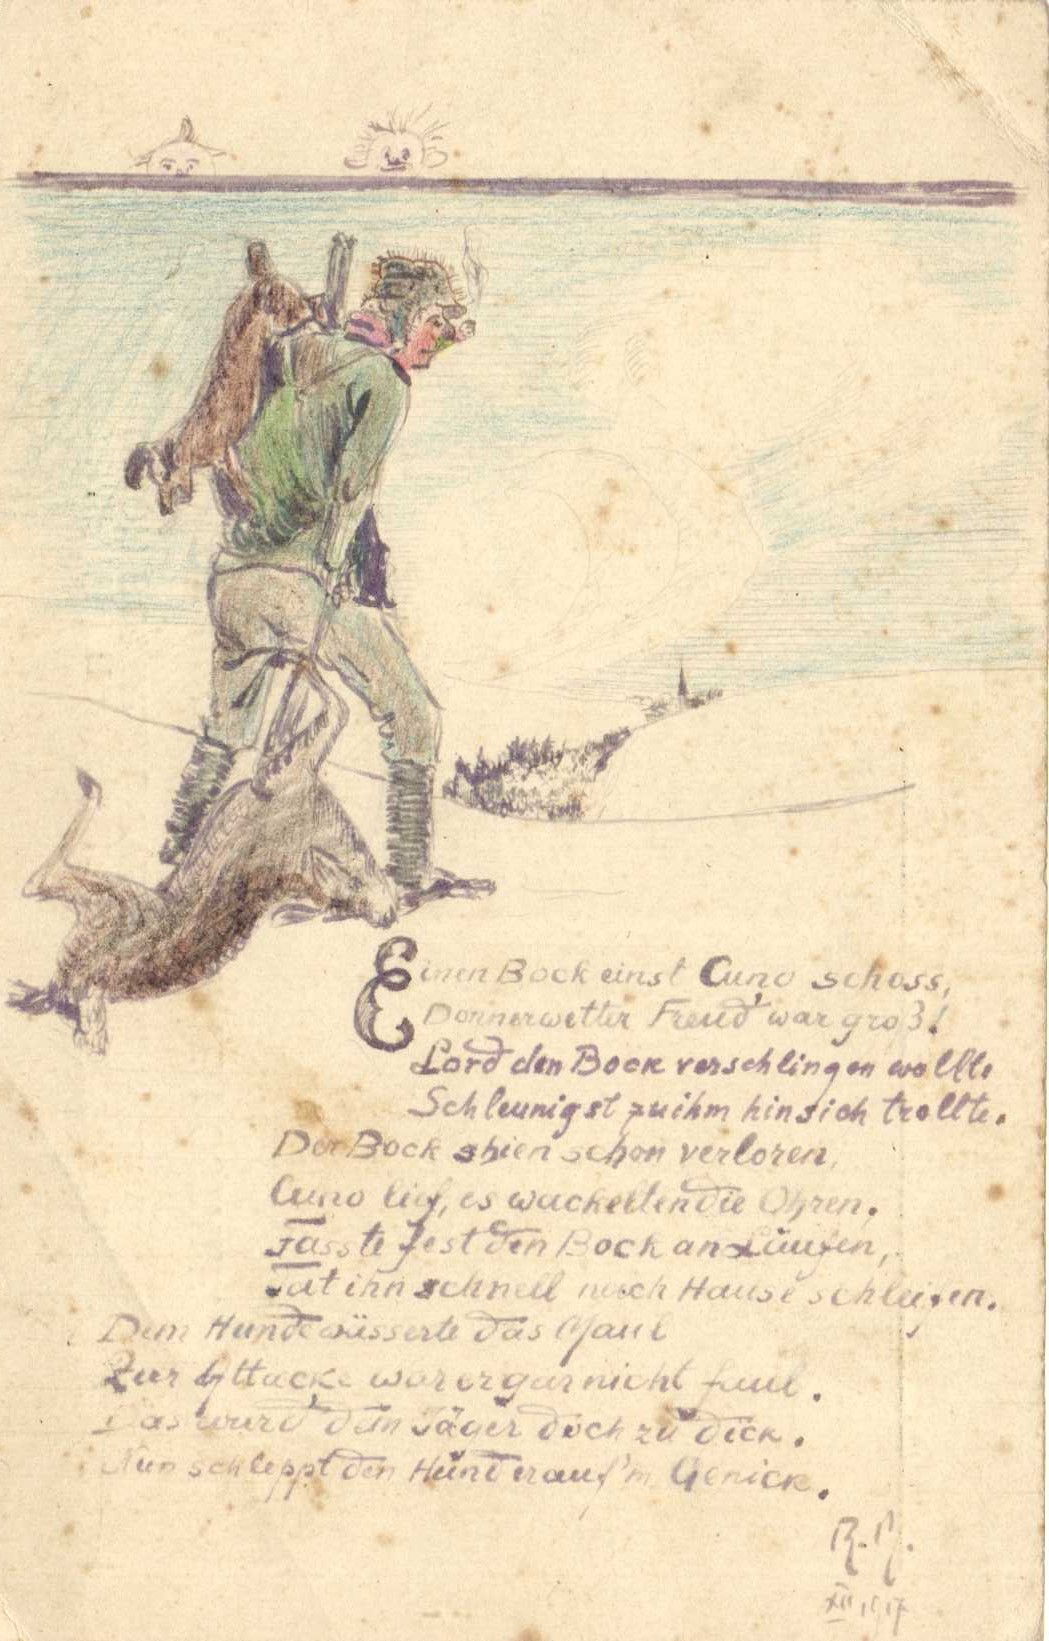 Einen Bock einst Cuno schoss,
Donnerwetter Freud' war groß!
Lord den Bock verschlingen wollte
Schleunigst zu ihm hin sich trollte.
Der Bock shien schon verloren,
Cuno lief, es wackelten die Ohren.
Fasste fest den Bock an Läufen,
Tat ihn schnell nach Hause schleifen.
Dem Hunde wässerte das Maul
Zur Attacke war er gar nicht faul.
Das wurd' dem Jäger doch zu dick.
Nun schleppt den Hund er auf'm Genick.
XII 1917